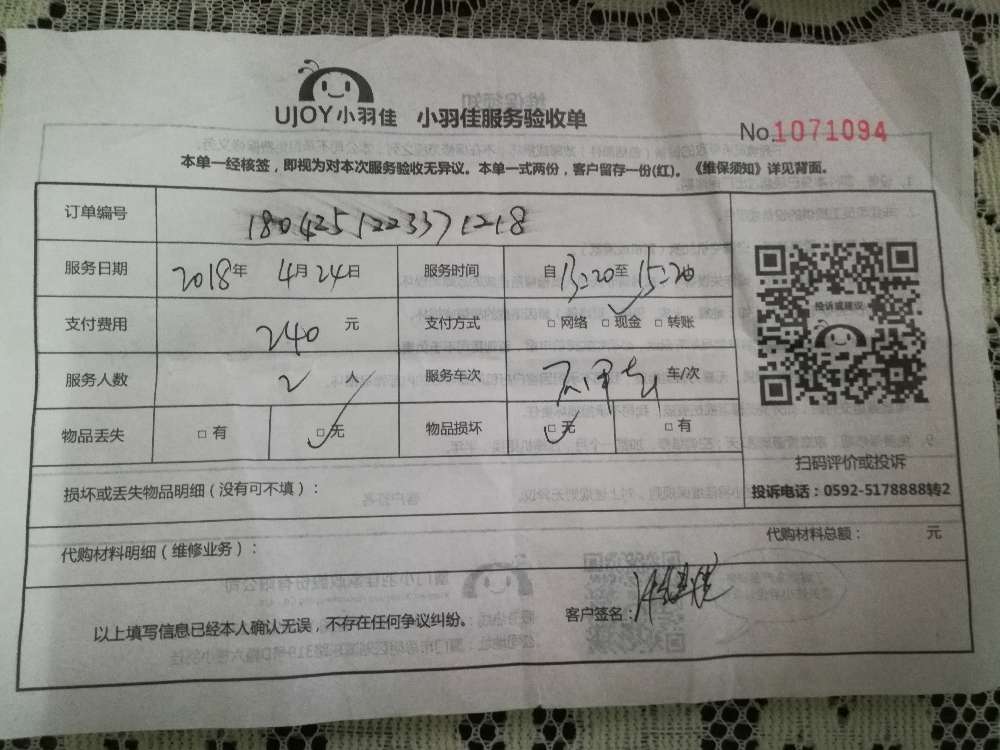 UJOY小羽佳 小羽佳服务验收单
No.1071094
本单一经核签，即视为对本次服务验收无异议。本单一式两份，客户留存一份(红)。《维保须知》详见背面。
订单编号
服务日期 2018年 4月24日 服务时间 自13:20至15:20
支付费用 240 元 支付方式 □网络 □现金 □转账
服务人数 2 人 服务车次 车/次
物品丢失 □有 □无 物品损坏 □无 □有
投诉或建议
扫码评价或投诉
投诉电话：0592-5178888转2
损坏或丢失物品明细（没有可不填）：
代购材料明细（维修业务）： 代购材料总额： 元
以上填写信息已经本人确认无误，不存在任何争议纠纷。 客户签名：